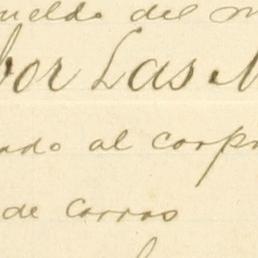 sueldo del m
por Las M
ado al corp
de carros